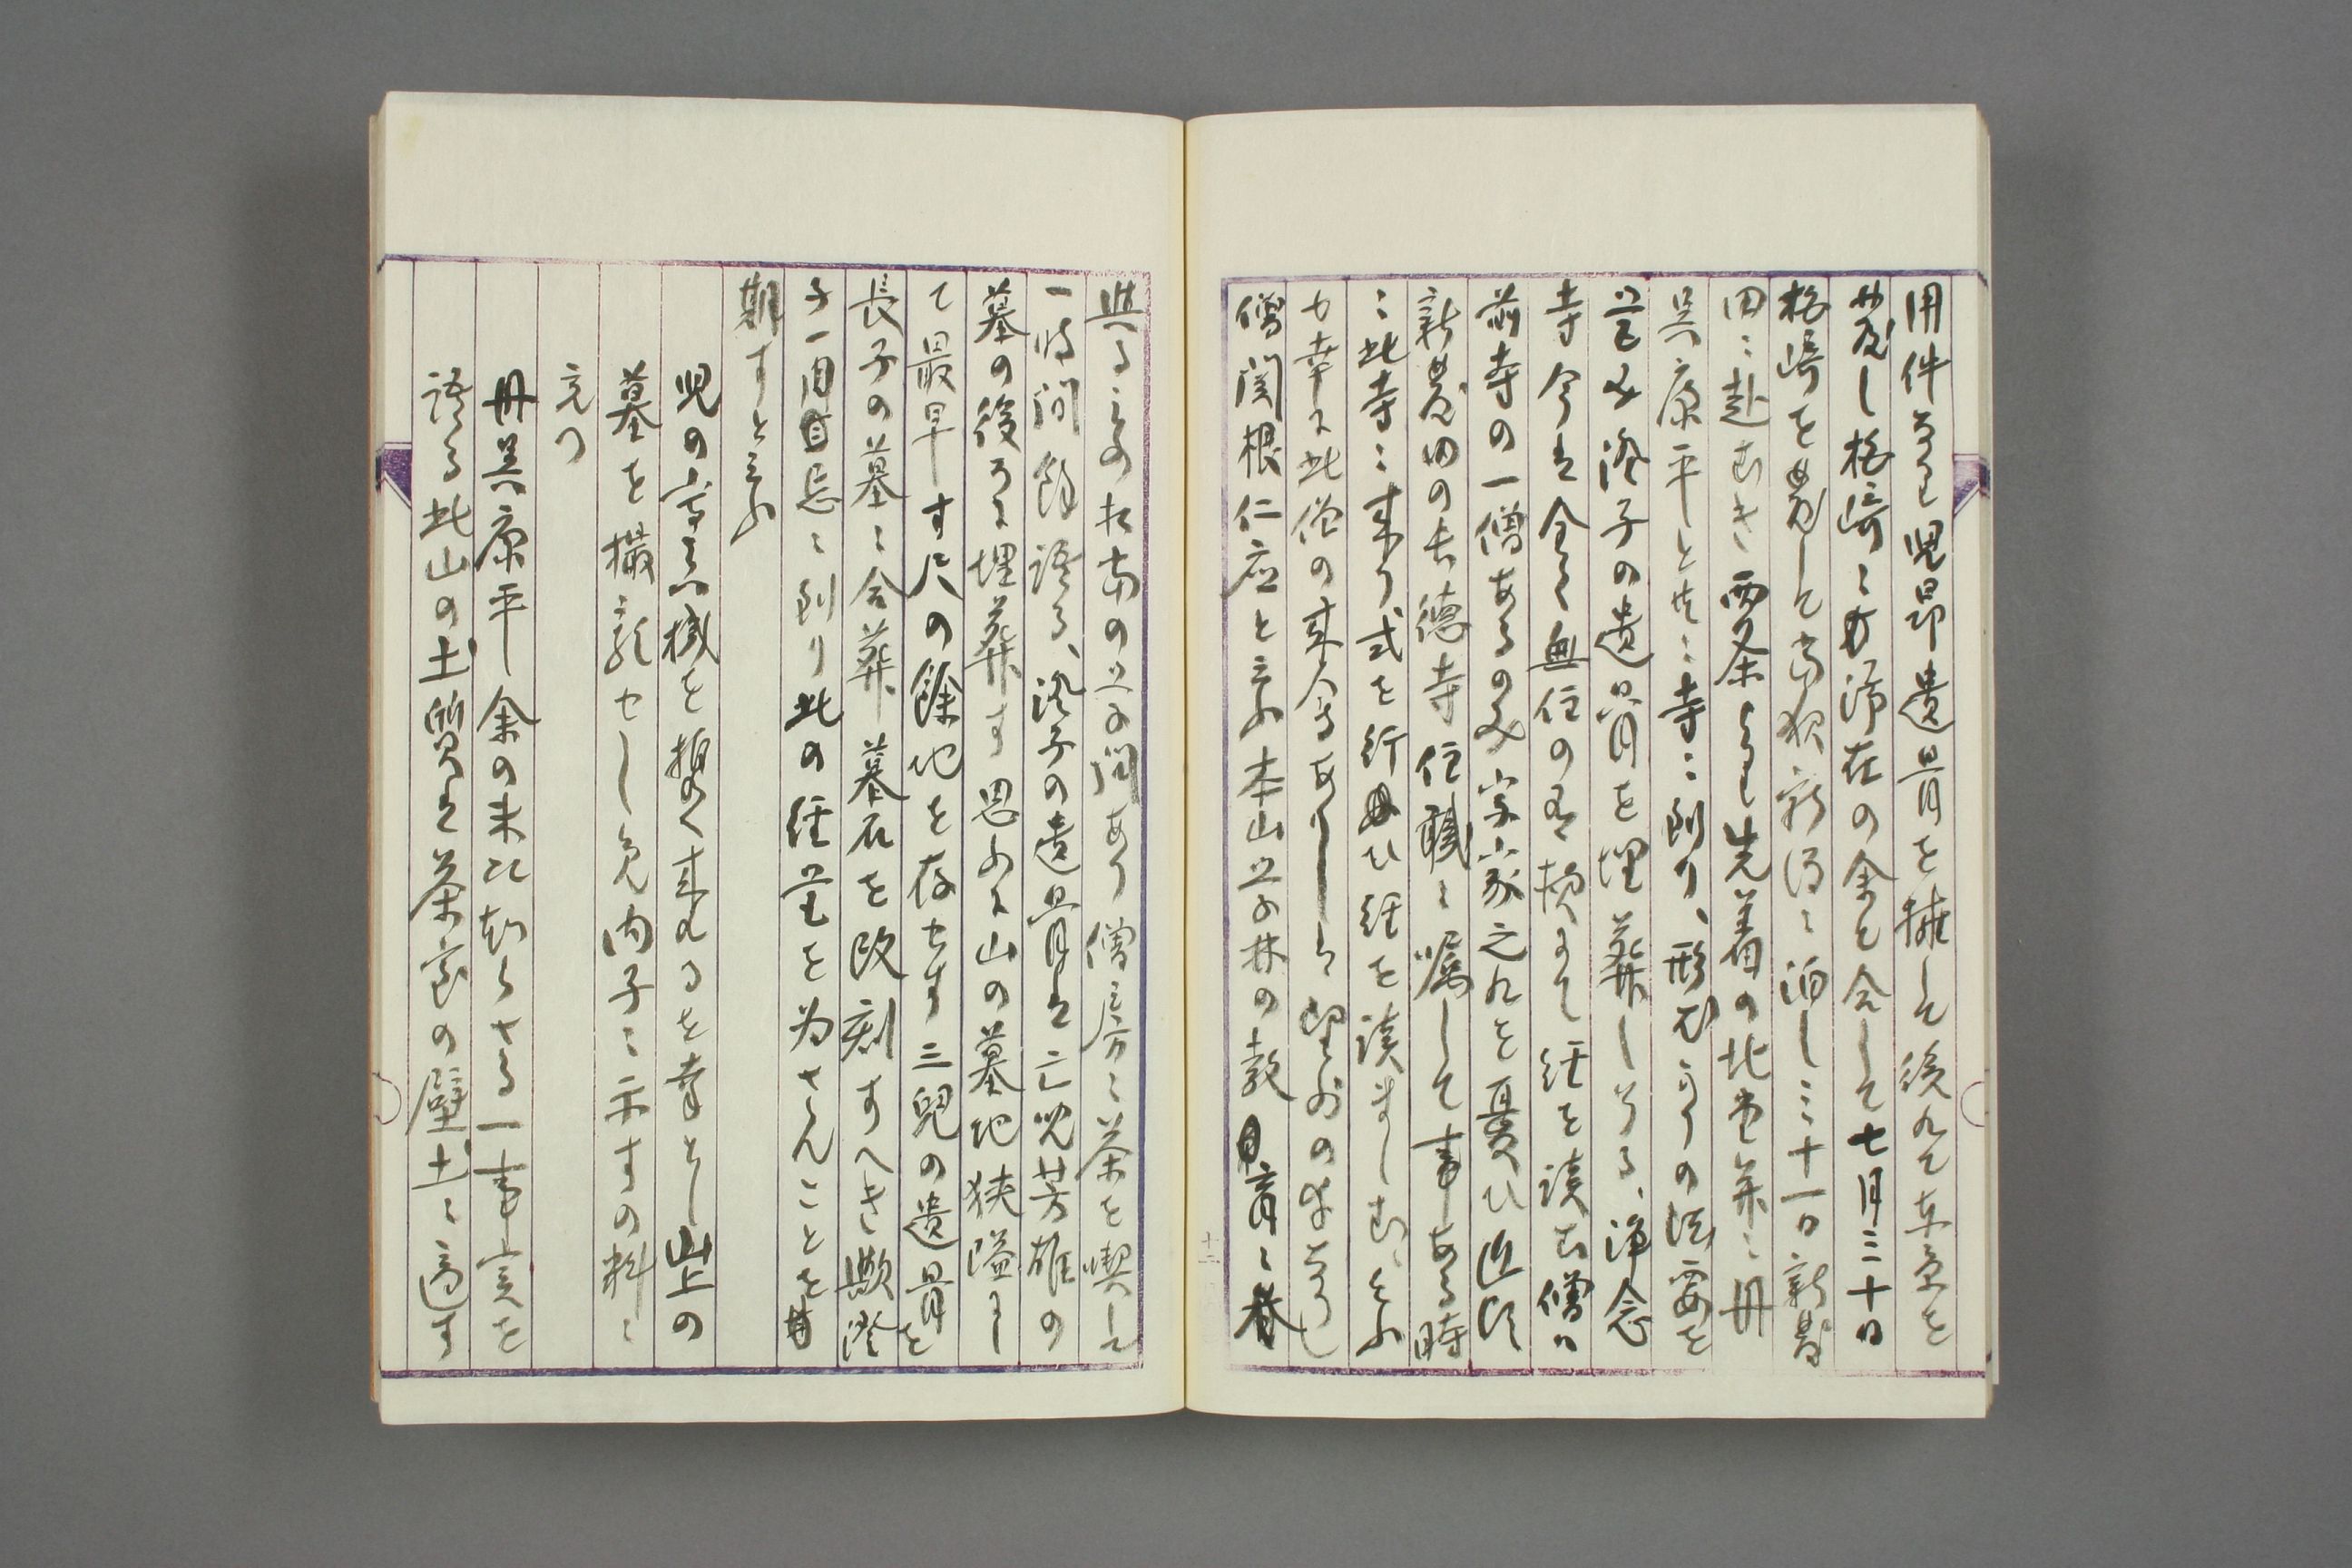 用件なる児昴遺骨を擁して後れて東京を
発し柏崎に滞在の余と会して七月三十日
柏崎を発して当夜新潟に泊し三十一日新発
田に赴き先着の北堂并に丹
呉康平と共に寺に到り、形ばかりの法要を
営み澄子の遺骨を埋葬し了る、浄念
寺今は全く無住の為て経を読む僧は
前寺の一僧あるのみ宗家之れを憂ひ近頃
新発田の長徳寺住職に嘱して事ある時
に此寺に来り式を行ひ経を読ましむ、と云ふ
も幸に此僧の来会ありしは望外の幸なりし
僧関根仁応と云ふ本山学林の教育に
與るもの相当の学問あり僧房に茶を喫して
一時間餘語る、澄子の遺骨は亡児芳雄の
墓の後ろに埋葬す思ふに山の墓地狭隘にし
て最早寸尺の餘地を存せす三児の遺骨を
長子の墓に合葬し墓石を改刻すへき歟澄
子一周忌に到り此の経営を為さんことを
期すと云ふ
児の写真機を携へ来るを幸とし山上の
墓を撮影せしめ内子に示すの料に
充つ
丹呉康平余の未た知らさる一事実を
語る此山の土質は茶家の壁土に適す